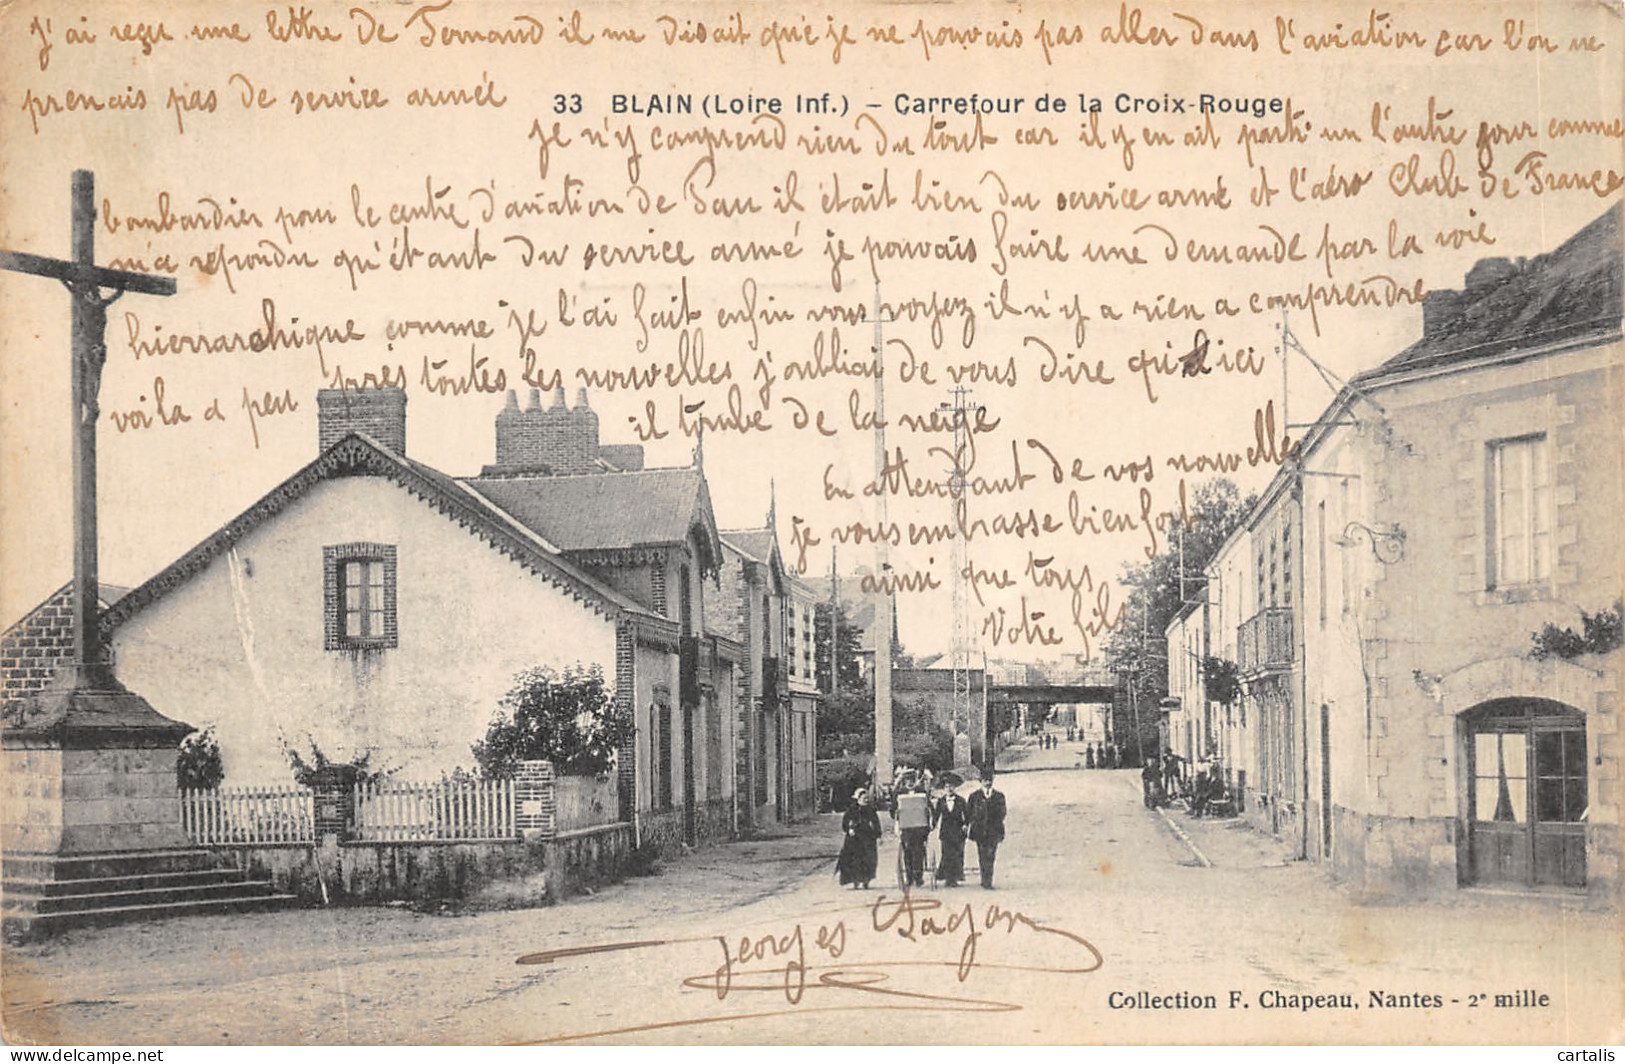 J'ai reçu une lettre de Fernand il me disait que je ne pouvais pas aller dans l'aviation car l'on ne
prenais pas de service armée
33 BLAIN (Loire Inf.) – Carrefour de la Croix-Rouge
Je n'y comprend rien du tout car il y en ait parti un l'autre jour comme
bombardier pour le centre d'aviation de Pau il était bien du service armé et l'aéro Club de France
m'a répondu qu'étant du service armé je pouvais faire une demande par la voie
hierrarchique comme je l'ai fait enfin vous voyez il n'y a rien a comprendre
voila a peu près toutes les nouvelles j'oubliai de vous dire qu'ici
il tombe de la neige
En attendant de vos nouvelles
je vous embrasse bien fort
ainsi que tous
Votre fils
Georges
Collection F. Chapeau, Nantes - 2e mille
cartalis